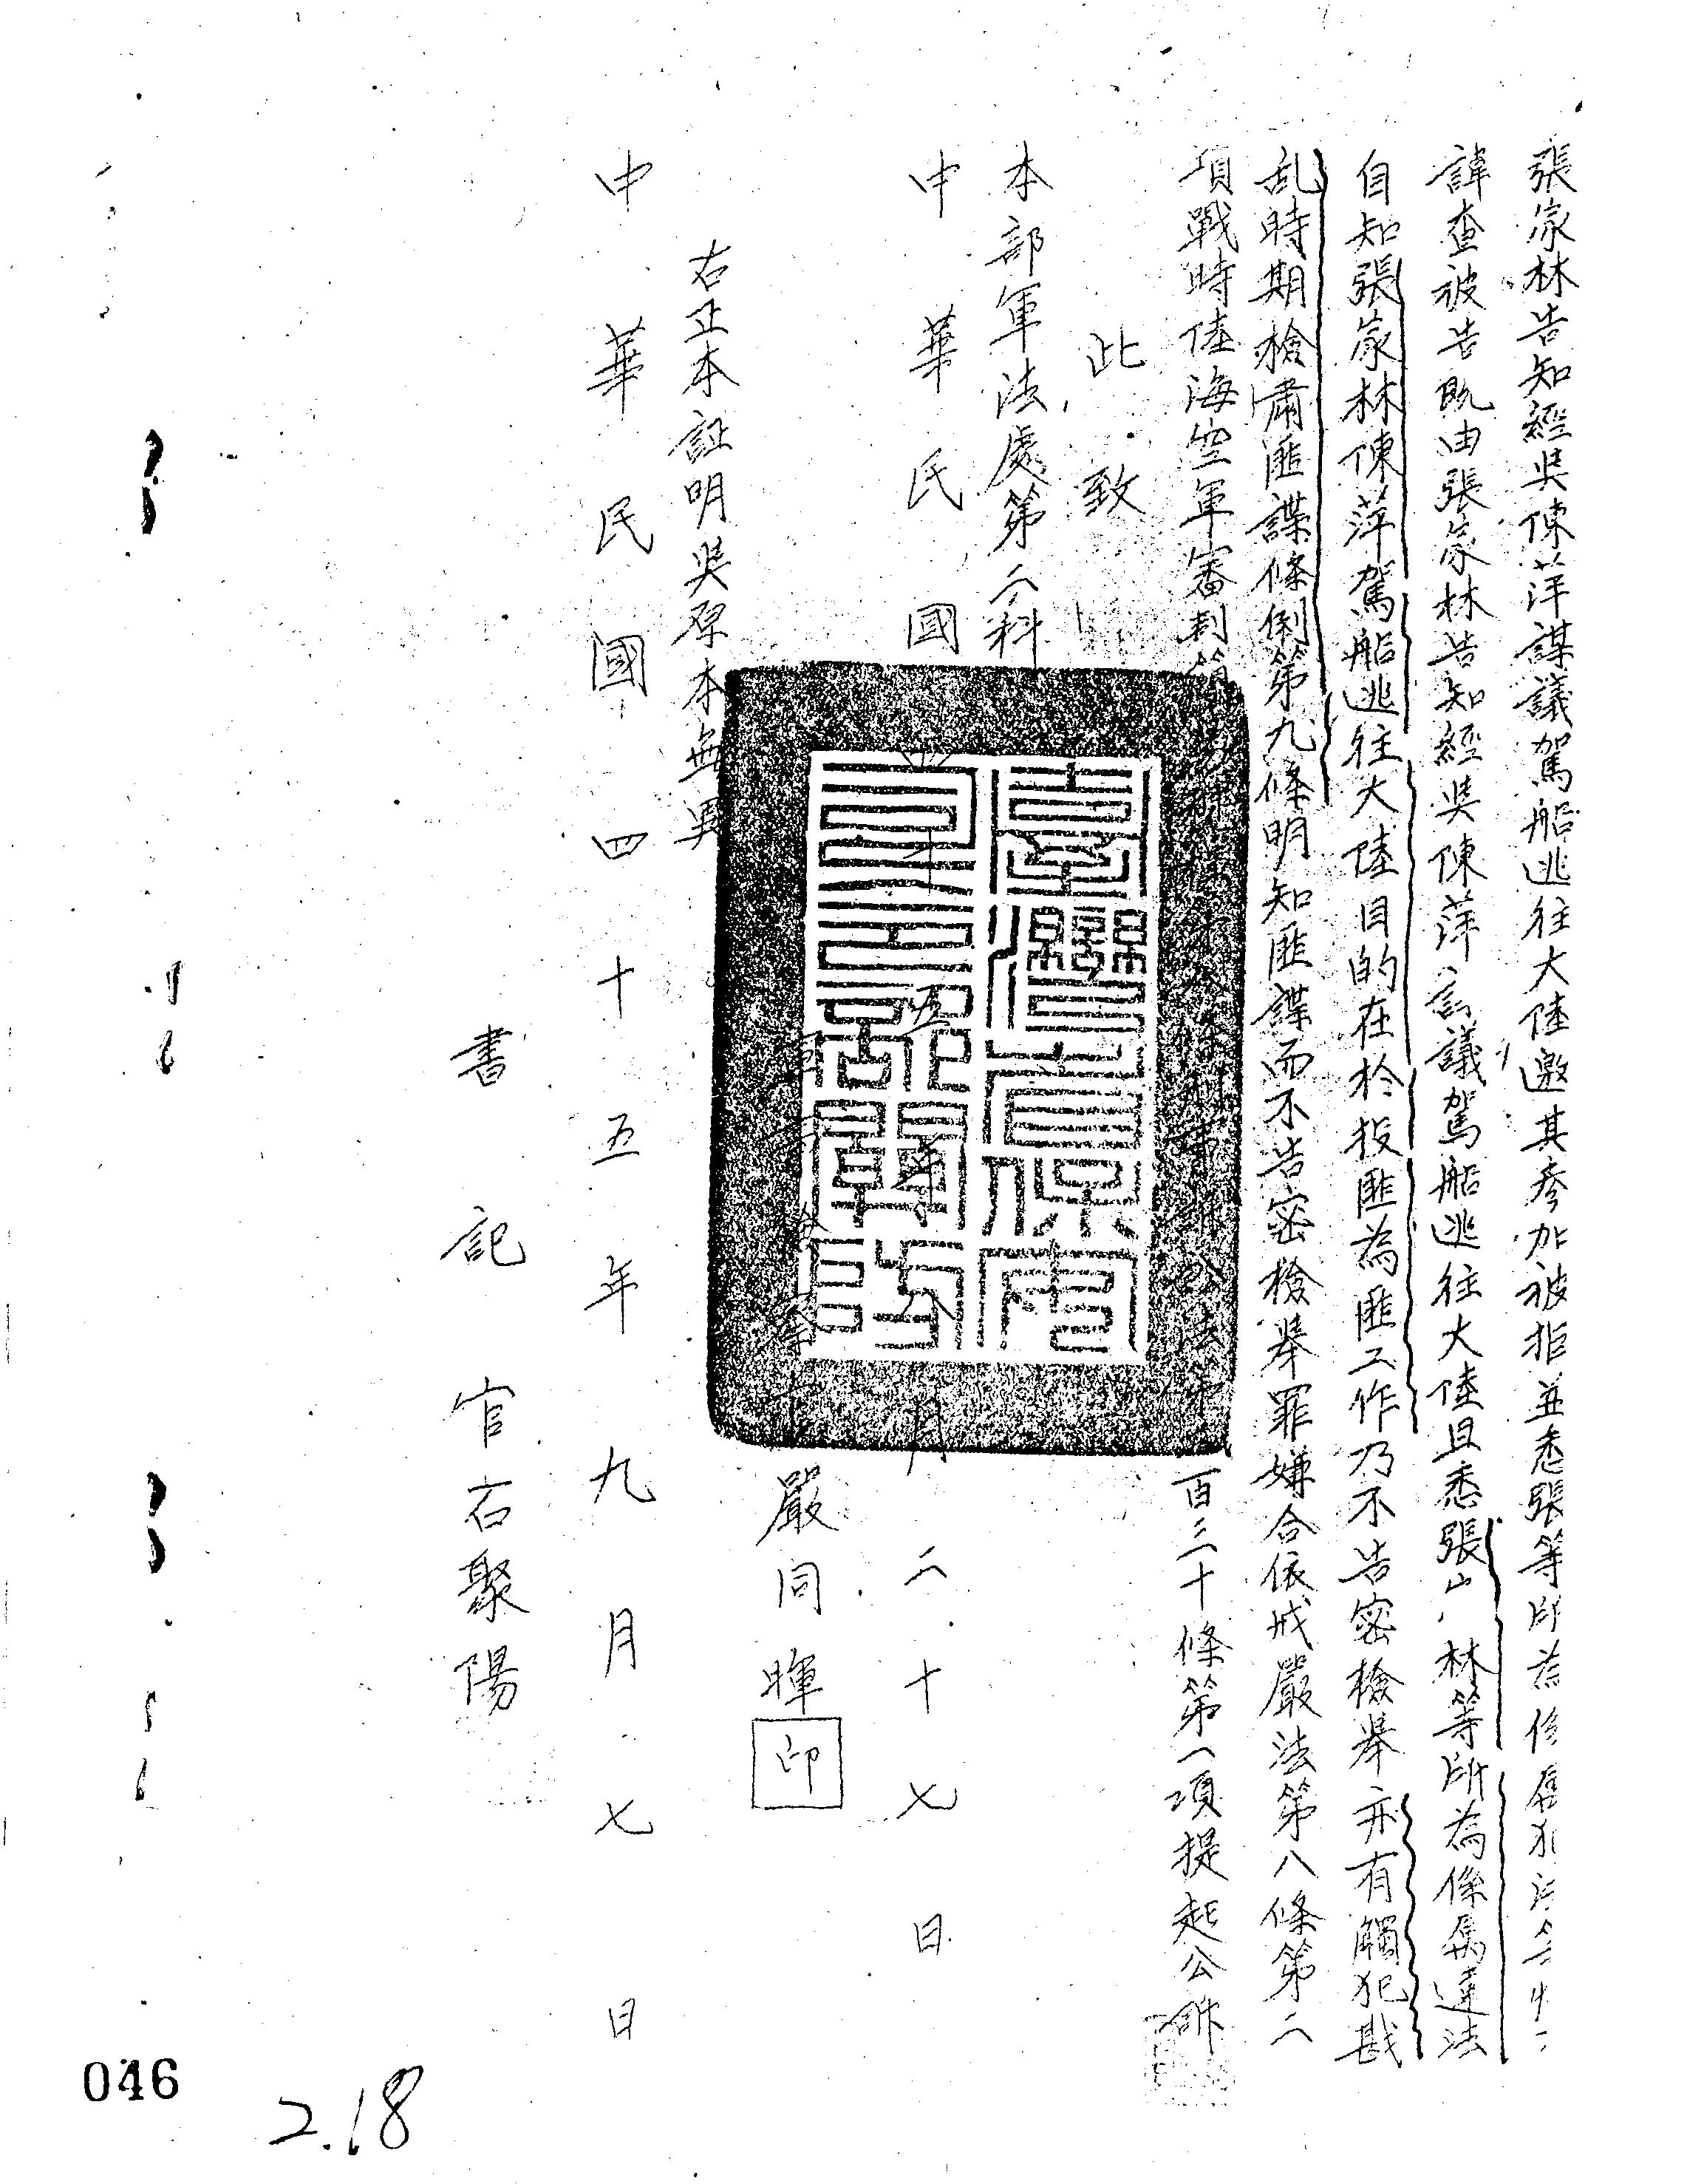 張家林告知經吳陳萍謀議駕船逃往大陸邀其參加被拒並悉張等所為係屬犯
諱查被告既由張家林告知經吳陳萍謀議駕船逃往大陸且悉張家林等所為係屬違法
自知張家林陳萍駕船逃往大陸目的在於投匪為匪工作乃不告密檢舉亦有觸犯戡
乱時期檢肅匪諜條例第九條明知匪諜而不告密檢舉罪嫌合依戒嚴法第八條第二
項戰時陸海空軍審判第百三十條第一項提起公訴
此致
本部軍法處第二科
中華民國四十五年八月二十七日
嚴同暉 印
右正本証明與原本無異
中華民國四十五年九月七日
書記官石聚陽
046
2.18